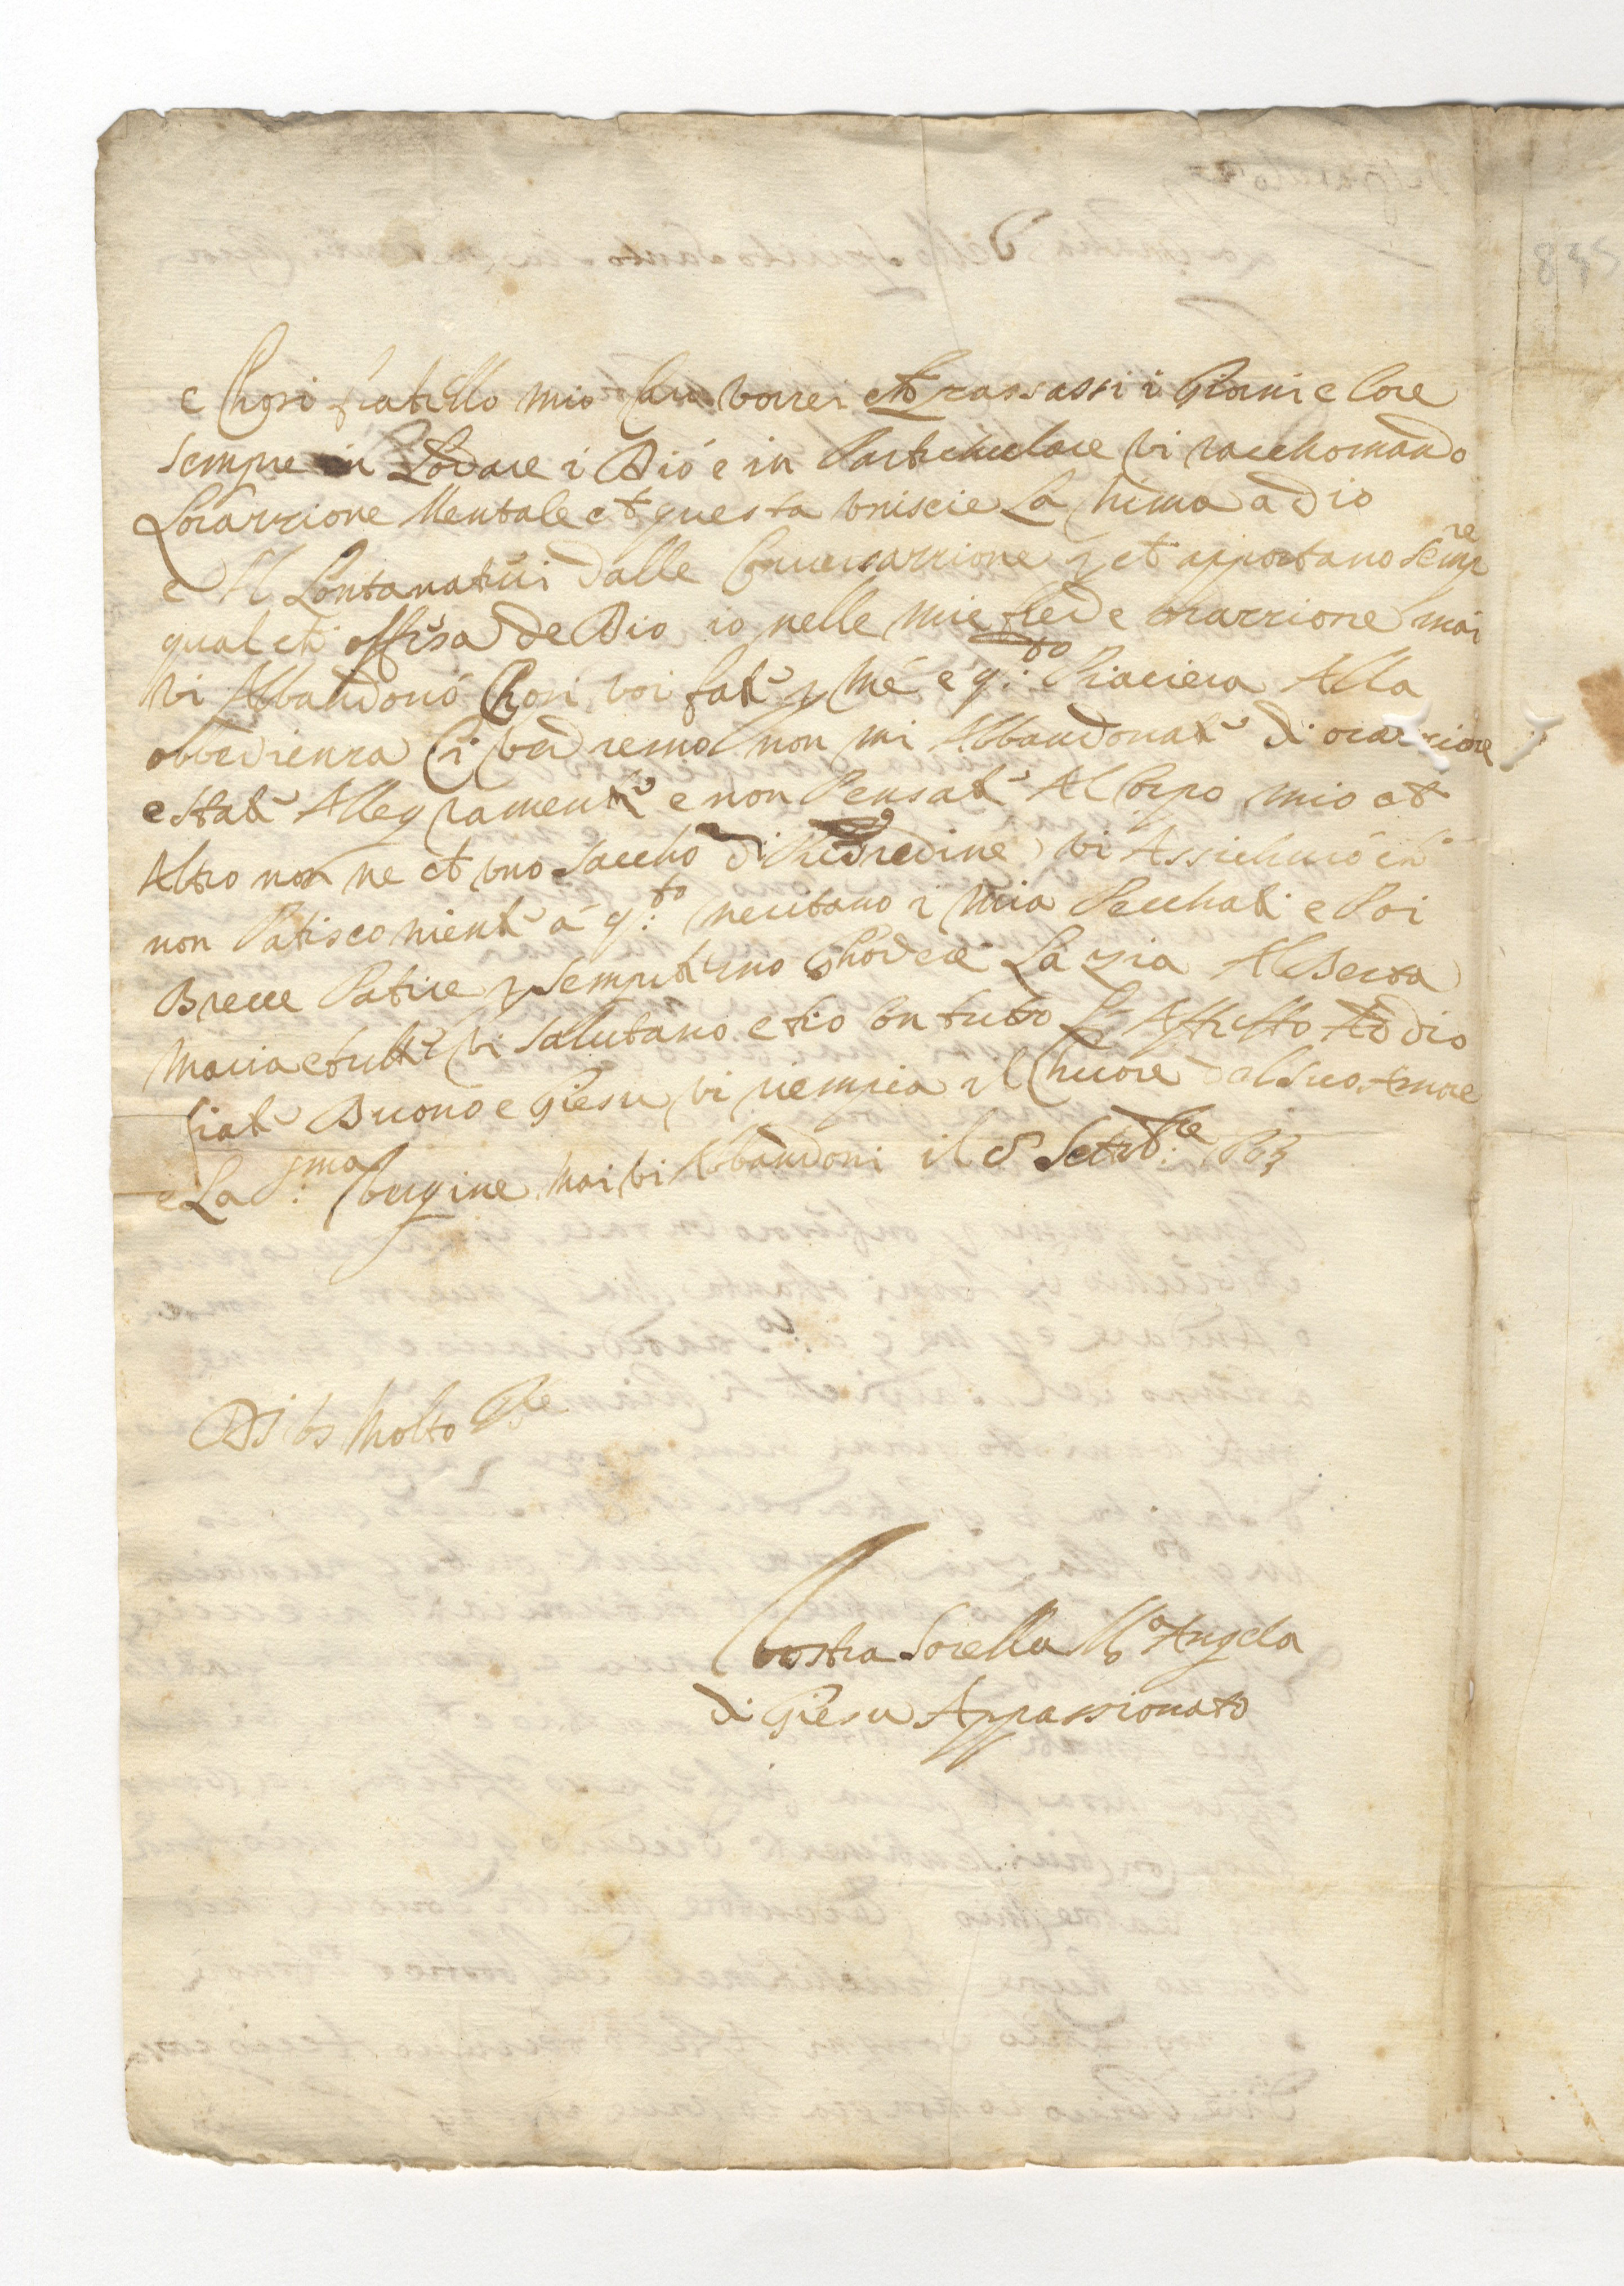 e Chosi fratello mio Caro vorrei che passassi i Giorni e lore
sempre in Lodare i Dio e in Partichulare vi racchomando
Lorazzione Mentale che questa vniscie La hima a dio
e Al Lontanatevi dalle Conversazzione p che apportano sempre
qualche offesa de Dio io nelle mie fred e orazzione mai
vi Abbandonó Chosi voi fate p Mé e q.do Piaciera Alla
obbedienza Ci vedremo non mi Abbandonate di orazzione
e State Allegramente e non Pensate Al Corpo mio che
Altro non ne che vno saccho di Putredine vi Assichuró che
non Patisco niente á q.to meritano i Mia Pecchati e Poi
Breve Patire p sempiterno Ghodere La zia Alberta
Maria e tutte vi salutano et io Con tutto L Affetto Addio
siate Buono e Giesu vi riempia il Chuore del suo Amore
e La S.ma Vergine Mai vi Abbandoni il 8 Settb.re
Di Vs Molto
Vostra Sorella M.a Angela
di Giesu Appassionato